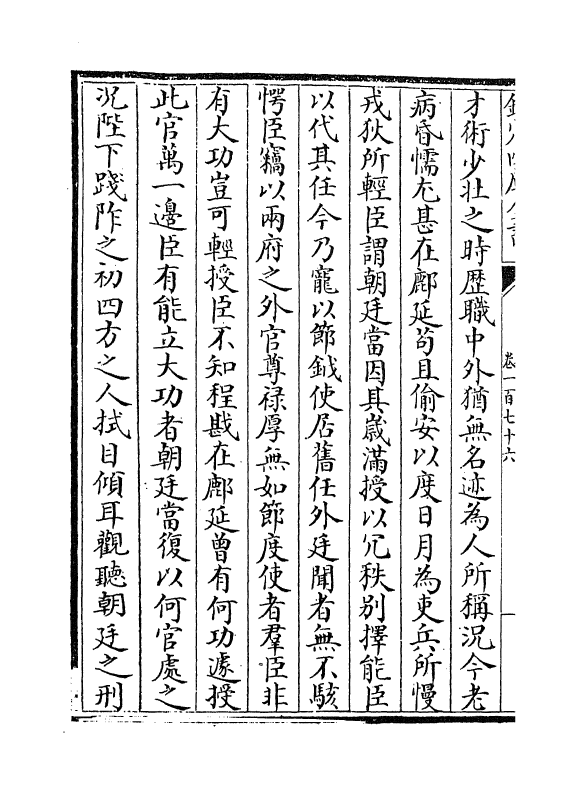 欽定四庫全書
卷一百七十六
才術少壯之時歷職中外猶無名迹為人所稱況今老
病昏懦尤甚在鄜延苟且偷安以度日月為吏兵所慢
戎狄所輕臣謂朝廷當因其歲滿授以冗秩别擇能臣
以代其任今乃寵以節鉞使居舊任外廷聞者無不駭
愕臣竊以兩府之外官尊禄厚無如節度使者羣臣非
有大功豈可輕授臣不知程戡在鄜延曾有何功遽授
此官萬一邊臣有能立大功者朝廷當復以何官處之
況陛下踐阼之初四方之人拭目傾耳觀聽朝廷之刑